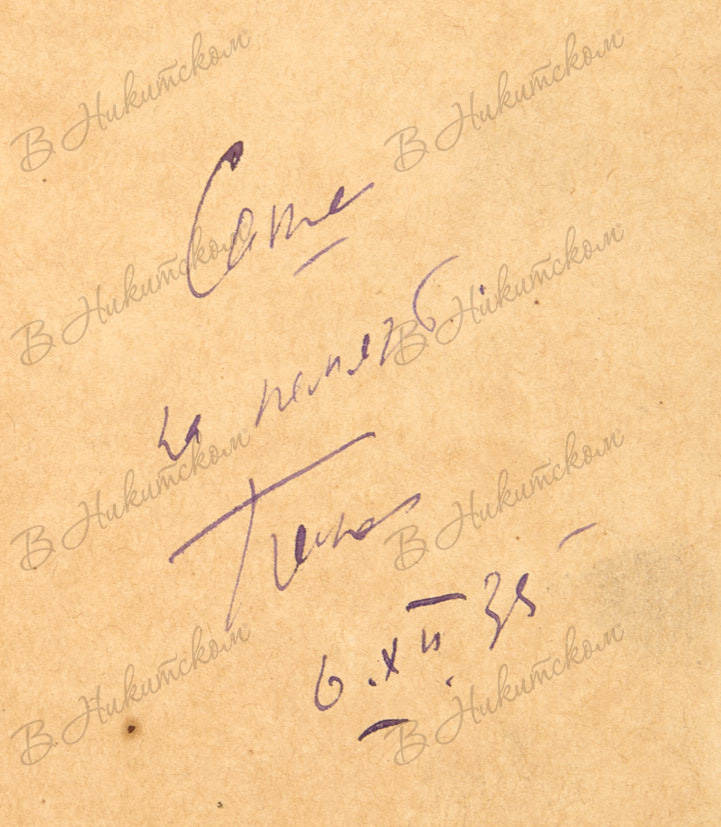 Саше
на память
6.XII 35
В Никитском
В Никитском
В Никитском
В Никитском
В Никитском
В Никитском
В Никитском
В Никитском